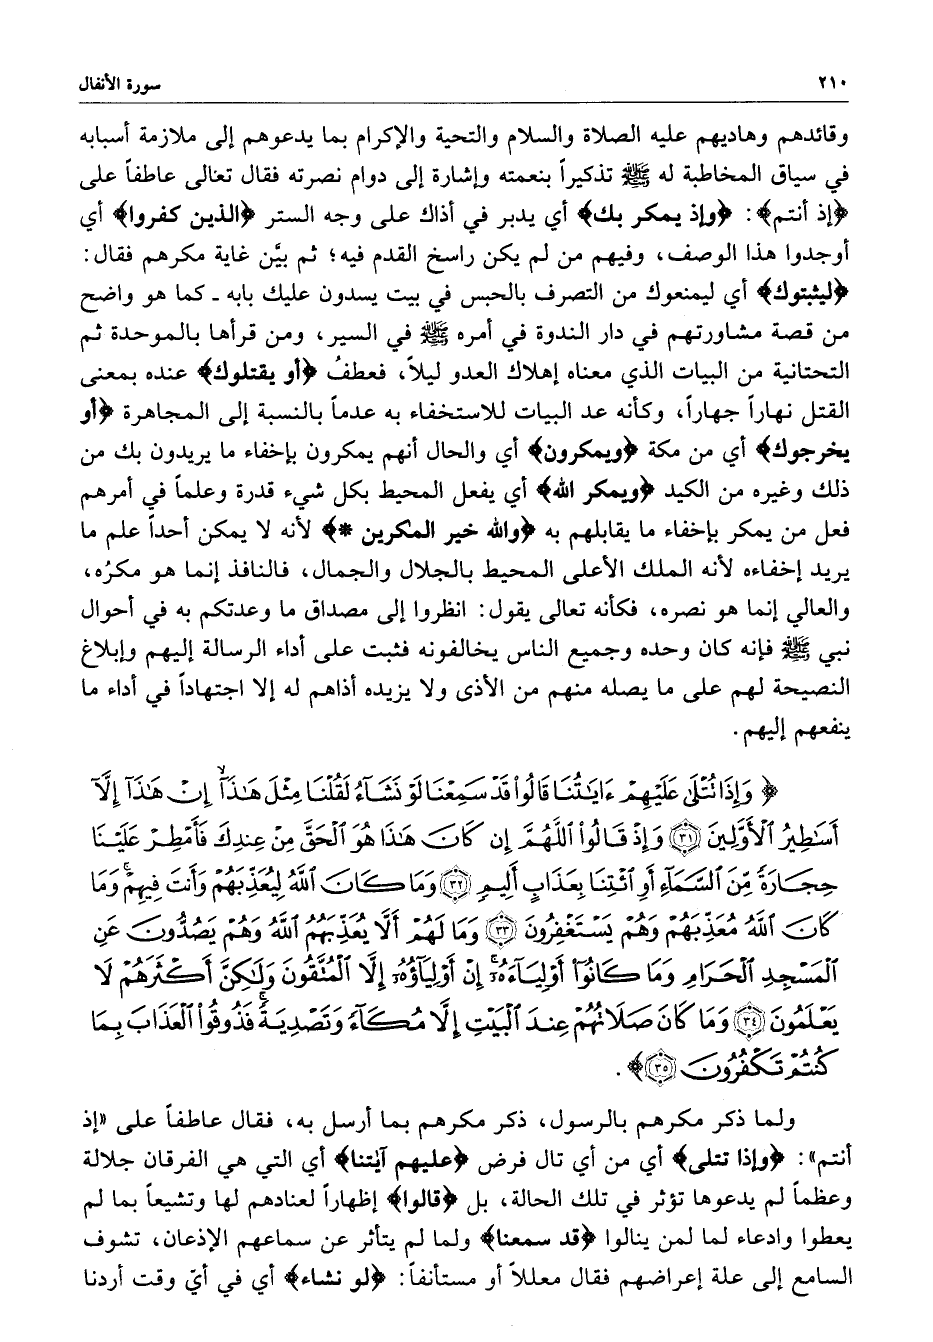 ٢١٠ سورة الأنفال
وقائدهم وهاديهم عليه الصلاة والسلام والتحية والإكرام بما يدعوهم إلى ملازمة أسبابه
في سياق المخاطبة له ﷺ تذكيراً بنعمته وإشارة إلى دوام نصرته فقال تعالى عاطفاً على
﴿إذ أنتم﴾: ﴿وإذ يمكر بك﴾ أي يدبر في أذاك على وجه الستر ﴿الذين كفروا﴾ أي
أوجدوا هذا الوصف، وفيهم من لم يكن راسخ القدم فيه؛ ثم بيَّن غاية مكرهم فقال:
﴿ليثبتوك﴾ أي ليمنعوك من التصرف بالحبس في بيت يسدون عليك بابه ـ كما هو واضح
من قصة مشاورتهم في دار الندوة في أمره ﷺ في السير، ومن قرأها بالموحدة ثم
التحتانية من البيات الذي معناه إهلاك العدو ليلاً، فعطفُ ﴿أو يقتلوك﴾ عنده بمعنى
القتل نهاراً جهاراً، وكأنه عد البيات للاستخفاء به عدماً بالنسبة إلى المجاهرة ﴿أو
يخرجوك﴾ أي من مكة ﴿ويمكرون﴾ أي والحال أنهم يمكرون بإخفاء ما يريدون بك من
ذلك وغيره من الكيد ﴿ويمكر الله﴾ أي يفعل المحيط بكل شيء قدرة وعلماً في أمرهم
فعل من يمكر بإخفاء ما يقابلهم به ﴿والله خير المكرين *﴾ لأنه لا يمكن أحداً علم ما
يريد إخفاءه لأنه الملك الأعلى المحيط بالجلال والجمال، فالنافذ إنما هو مكرُه،
والعالي إنما هو نصره، فكأنه تعالى يقول: انظروا إلى مصداق ما وعدتكم به في أحوال
نبي ﷺ فإنه كان وحده وجميع الناس يخالفونه فثبت على أداء الرسالة إليهم وإبلاغ
النصيحة لهم على ما يصله منهم من الأذى ولا يزيده أذاهم له إلا اجتهاداً في أداء ما
ينفعهم إليهم.
﴿وَإِذَا تُتْلَىٰ عَلَيْهِمْ ءَايَـٰتُنَا قَالُوا۟ قَدْ سَمِعْنَا لَوْ نَشَآءُ لَقُلْنَا مِثْلَ هَـٰذَآ ۙ إِنْ هَـٰذَآ إِلَّآ
أَسَـٰطِيرُ ٱلْأَوَّلِينَ ۝٣١ وَإِذْ قَالُوا۟ ٱللَّهُمَّ إِن كَانَ هَـٰذَا هُوَ ٱلْحَقَّ مِنْ عِندِكَ فَأَمْطِرْ عَلَيْنَا
حِجَارَةً مِّنَ ٱلسَّمَآءِ أَوِ ٱئْتِنَا بِعَذَابٍ أَلِيمٍ ۝٣٢ وَمَا كَانَ ٱللَّهُ لِيُعَذِّبَهُمْ وَأَنتَ فِيهِمْ ۚ وَمَا
كَانَ ٱللَّهُ مُعَذِّبَهُمْ وَهُمْ يَسْتَغْفِرُونَ ۝٣٣ وَمَا لَهُمْ أَلَّا يُعَذِّبَهُمُ ٱللَّهُ وَهُمْ يَصُدُّونَ عَنِ
ٱلْمَسْجِدِ ٱلْحَرَامِ وَمَا كَانُوٓا۟ أَوْلِيَآءَهُۥٓ ۚ إِنْ أَوْلِيَآؤُهُۥٓ إِلَّا ٱلْمُتَّقُونَ وَلَـٰكِنَّ أَكْثَرَهُمْ لَا
يَعْلَمُونَ ۝٣٤ وَمَا كَانَ صَلَاتُهُمْ عِندَ ٱلْبَيْتِ إِلَّا مُكَآءً وَتَصْدِيَةً ۚ فَذُوقُوا۟ ٱلْعَذَابَ بِمَا
كُنتُمْ تَكْفُرُونَ ۝٣٥﴾.
ولما ذكر مكرهم بالرسول، ذكر مكرهم بما أرسل به، فقال عاطفاً على «إذ
أنتم»: ﴿وإذا تتلى﴾ أي من أي تال فرض ﴿عليهم آيٰتنا﴾ أي التي هي الفرقان جلالة
وعظماً لم يدعوها تؤثر في تلك الحالة، بل ﴿قالوا﴾ إظهاراً لعنادهم لها وتشيعاً بما لم
يعطوا وادعاء لما لمن ينالوا ﴿قد سمعنا﴾ ولما لم يتأثر عن سماعهم الإذعان، تشوف
السامع إلى علة إعراضهم فقال معللاً أو مستأنفاً: ﴿لو نشاء﴾ أي في أيّ وقت أردنا